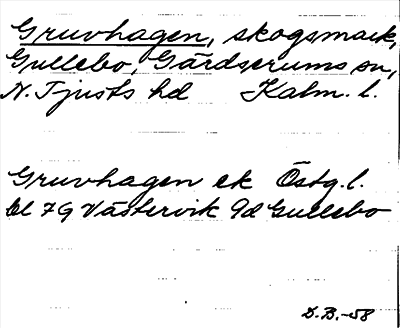 Gruvhagen, skogsmark,
Gullebo, Gärdserums sn,
N. Tjusts hd Kalm. l.
Gruvhagen ek Östg. l.
bl 7G Västervik 9d Gullebo
D.B.-58